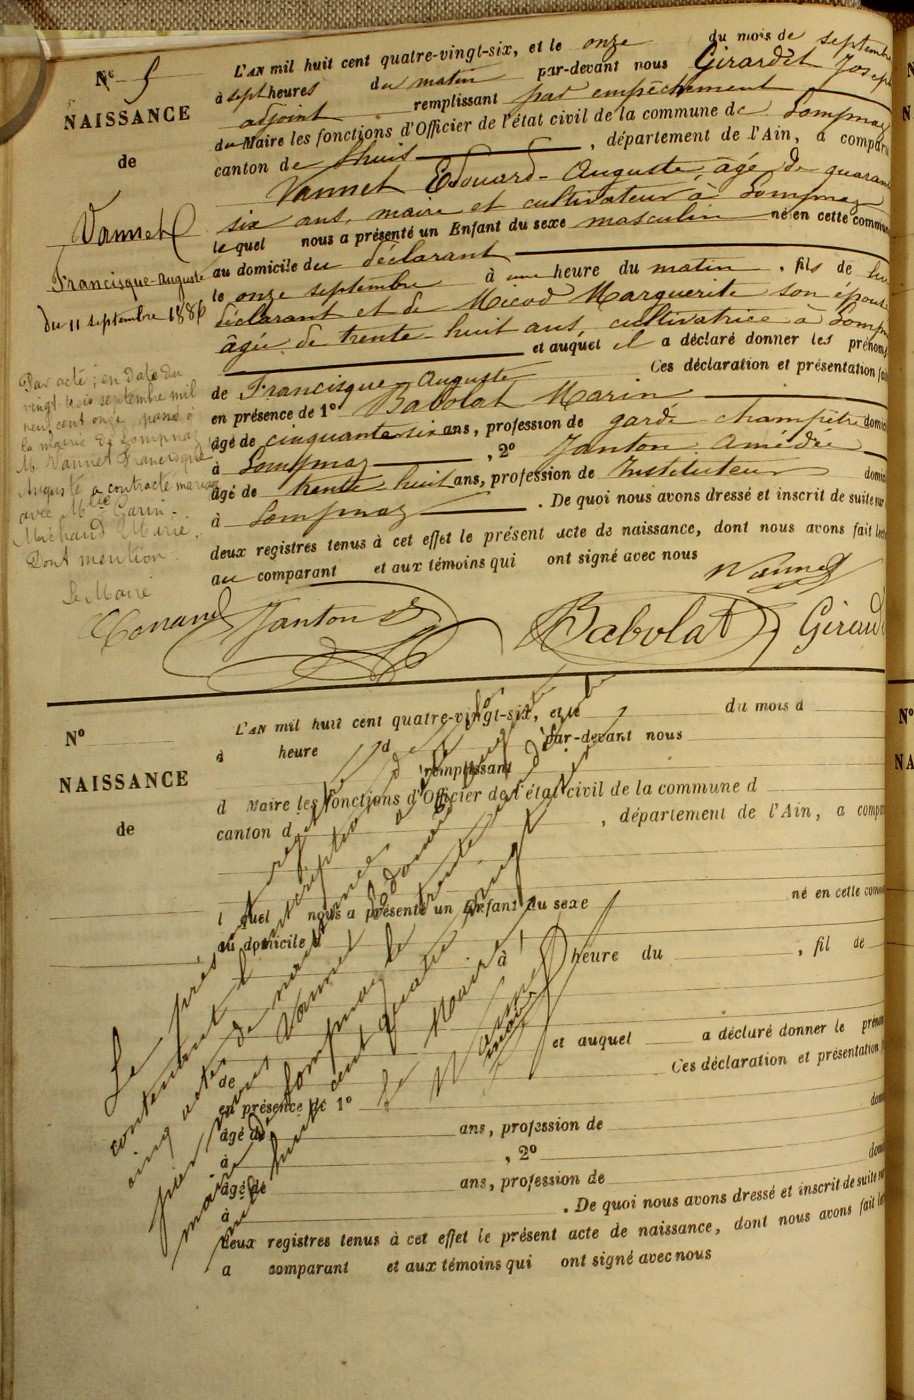 Nº 5
NAISSANCE
de
Vannet
Francisque-Auguste
du 11 septembre 1886
Par acte, en date du
vingt trois septembre mil
neuf cent onze passé à
la mairie de Lompnaz
M. Vannet Francisque
Auguste a contracté mariage
avec Mlle
Marie.
Dont mention.
Le Maire
L'AN mil huit cent quatre-vingt-six, et le onze du mois de septembre
à sept heures du matin par-devant nous Girardet Joseph
adjoint remplissant par empêchement
du Maire les fonctions d'Officier de l'état civil de la commune de Lompnaz
canton de Lhuis, département de l'Ain, a comparu
Vannet Edouard-Auguste, âgé de quarante
six ans, maire et cultivateur à Lompnaz
lequel nous a présenté un Enfant du sexe masculin né en cette commune
au domicile du déclarant
le onze septembre à une heure du matin, fils de lui
déclarant et de Micod Marguerite son épouse
âgée de trente-huit ans, cultivatrice à Lompnaz
et auquel il a déclaré donner les prénoms
de Francisque Auguste Ces déclaration et présentation
en présence de 1º Babolat Marin
âgé de cinquante six ans, profession de garde champêtre domi
à Lompnaz, 2º Janton Amédée
âgé de trente huit ans, profession de Instituteur domi
à Lompnaz. De quoi nous avons dressé et inscrit de suite sur
deux registres tenus à cet effet le présent acte de naissance, dont nous avons fait lec
au comparant et aux témoins qui ont signé avec nous
Vannet
Janton Babolat
Nº
NAISSANCE
de
L'AN mil huit cent quatre-vingt-six, et le du mois d
à heure d par-devant nous
remplissant
d Maire les fonctions d'Officier de l'état civil de la commune d
canton d, département de l'Ain, a comparu
l quel nous a présenté un Enfant du sexe né en cette commune
au domicile d
à heure du, fil de
et auquel a déclaré donner le prénom
de Ces déclaration et présentation
en présence de 1º
âgé de ans, profession de domi
à, 2º
âgé de ans, profession de domi
à. De quoi nous avons dressé et inscrit de suite sur
deux registres tenus à cet effet le présent acte de naissance, dont nous avons fait lec
a comparant et aux témoins qui ont signé avec nous
Le présent registre
contenant l'inscription de
cinq actes de naissance, a été clos
par nous Vannet Edouard Auguste
maire de Lompnaz le trente un décembre
mil huit cent quatre vingt six
Le Maire
Vannet
maire